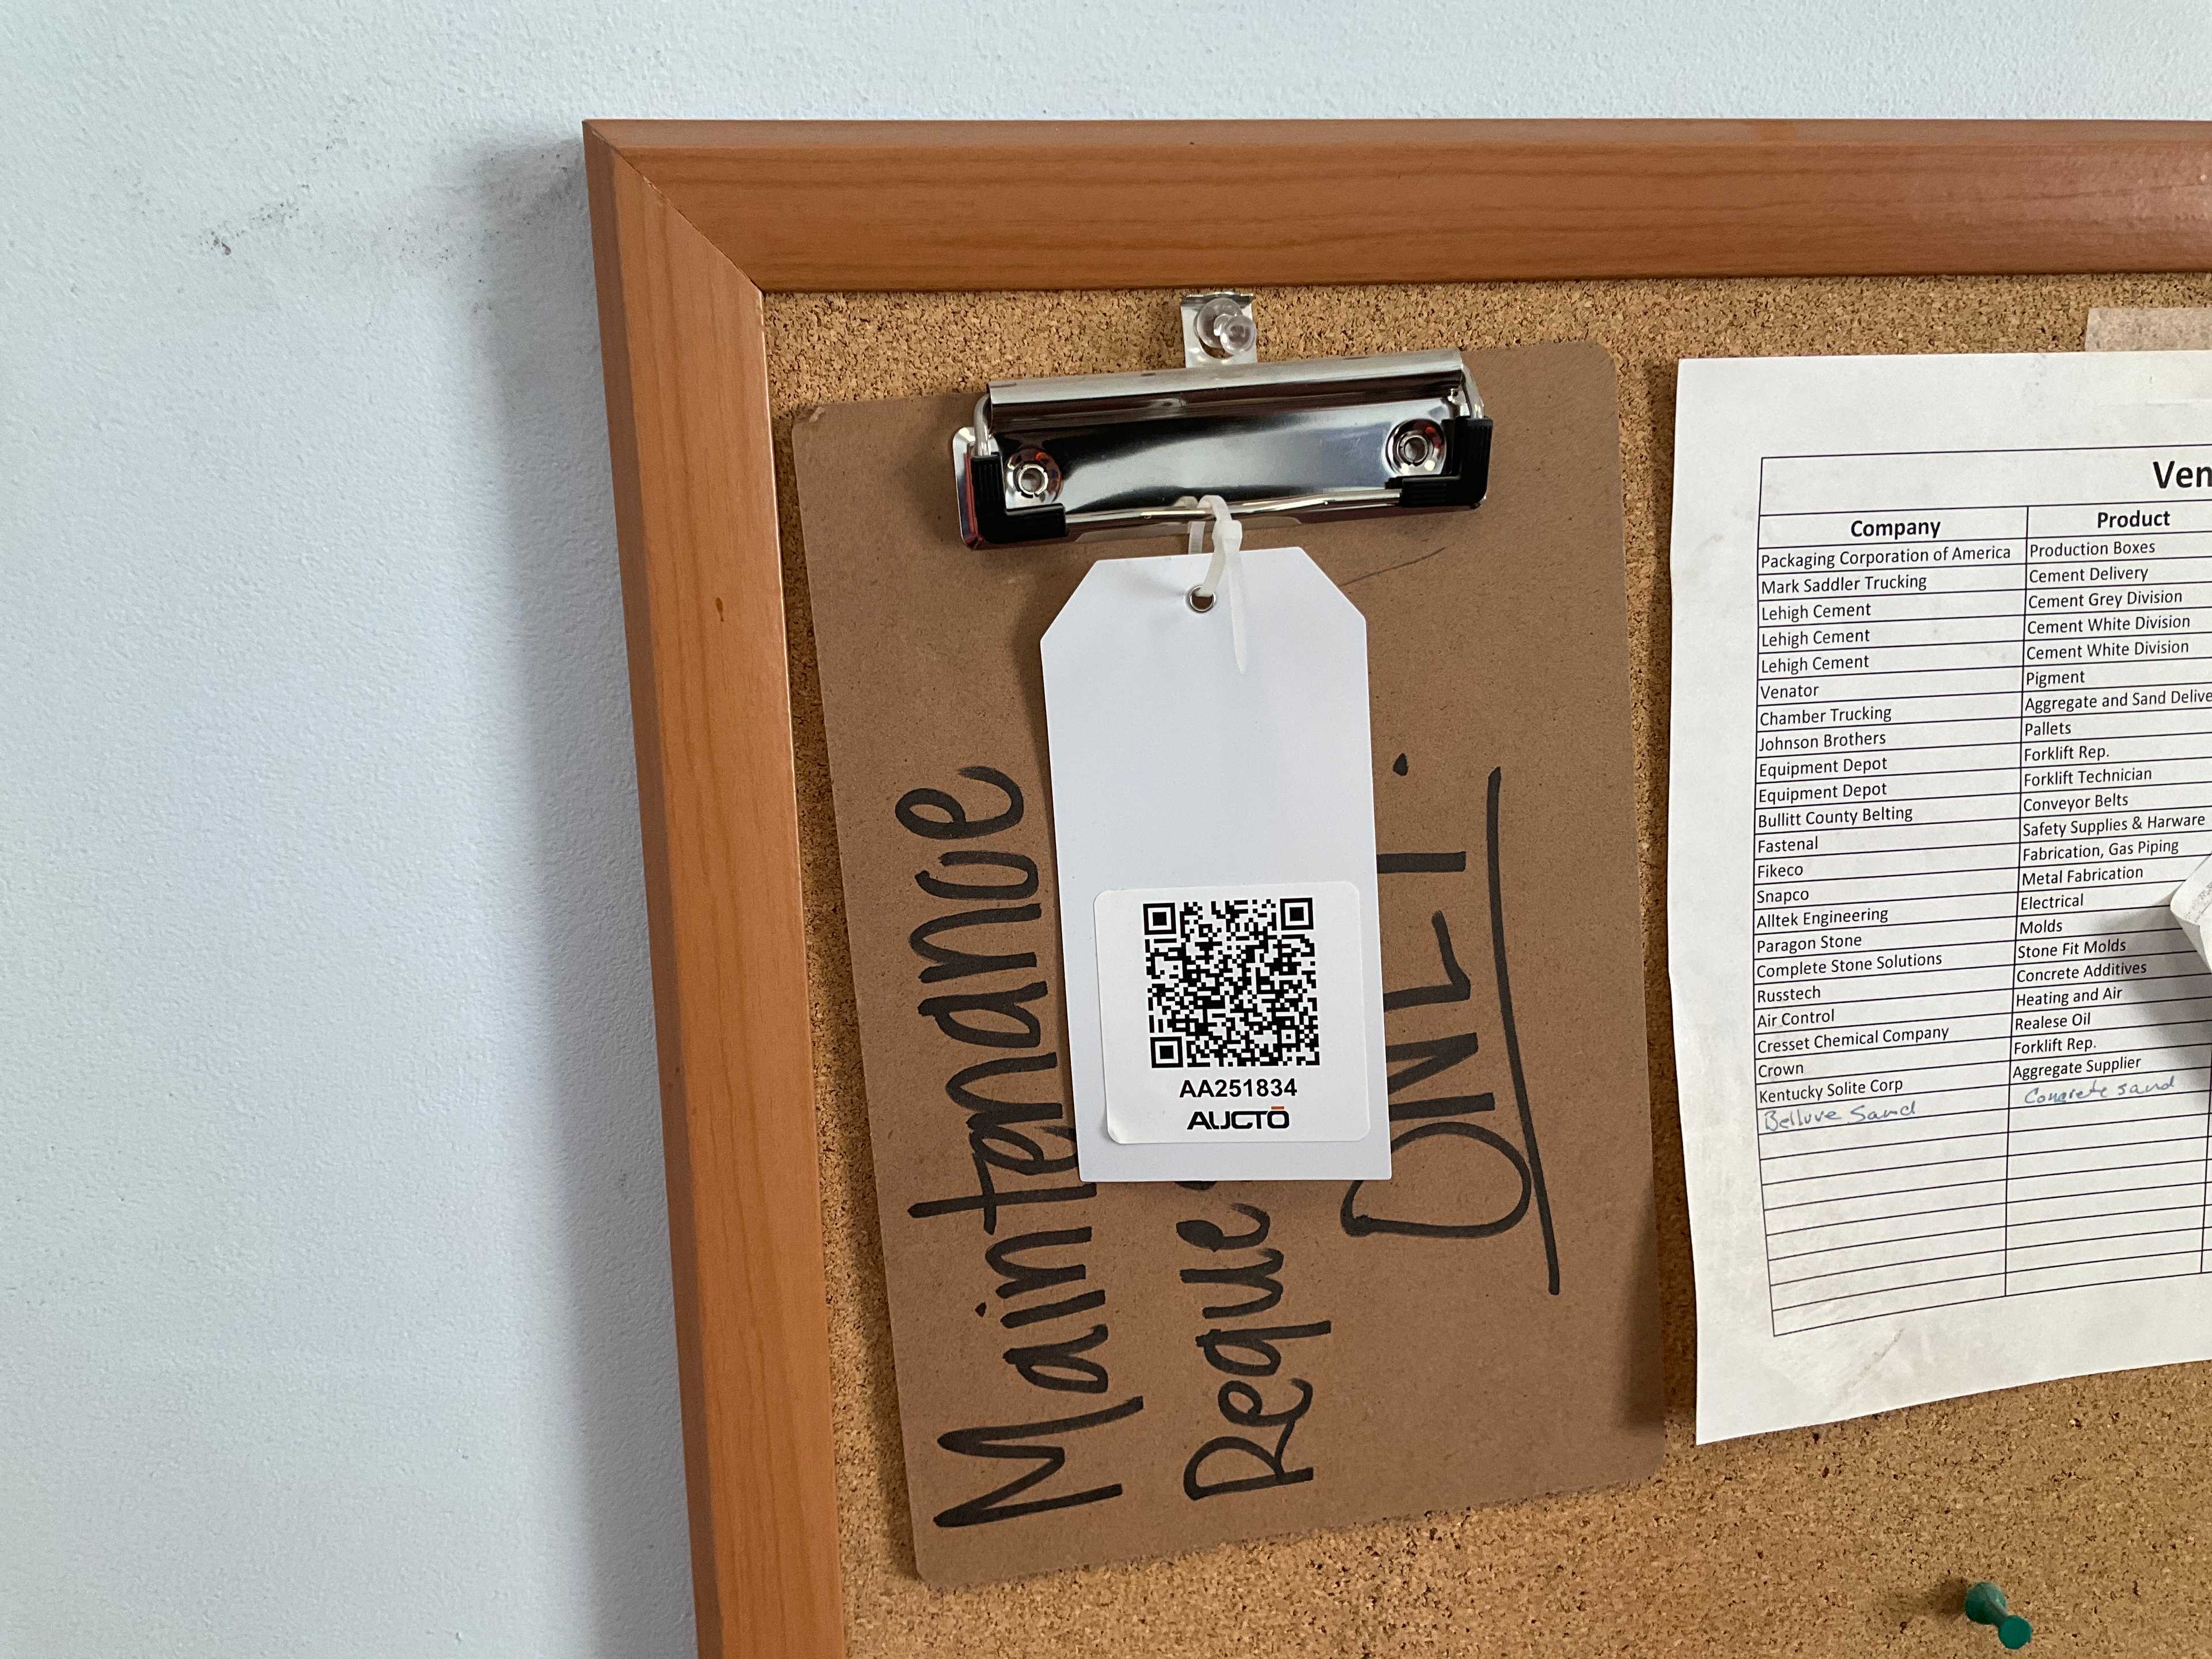 Maintenance
Reque
ONLY.
AA251834
AUCTO
Ven
Company Product
Packaging Corporation of America Production Boxes
Mark Saddler Trucking Cement Delivery
Lehigh Cement Cement Grey Division
Lehigh Cement Cement White Division
Lehigh Cement Cement White Division
Venator Pigment
Chamber Trucking Aggregate and Sand Delive
Johnson Brothers Pallets
Equipment Depot Forklift Rep.
Equipment Depot Forklift Technician
Bullitt County Belting Conveyor Belts
Fastenal Safety Supplies & Harware
Fikeco Fabrication, Gas Piping
Snapco Metal Fabrication
Alltek Engineering Electrical
Paragon Stone Molds
Complete Stone Solutions Stone Fit Molds
Russtech Concrete Additives
Air Control Heating and Air
Cresset Chemical Company Realese Oil
Crown Forklift Rep.
Kentucky Solite Corp Aggregate Supplier
Belluve Sand Concrete sand